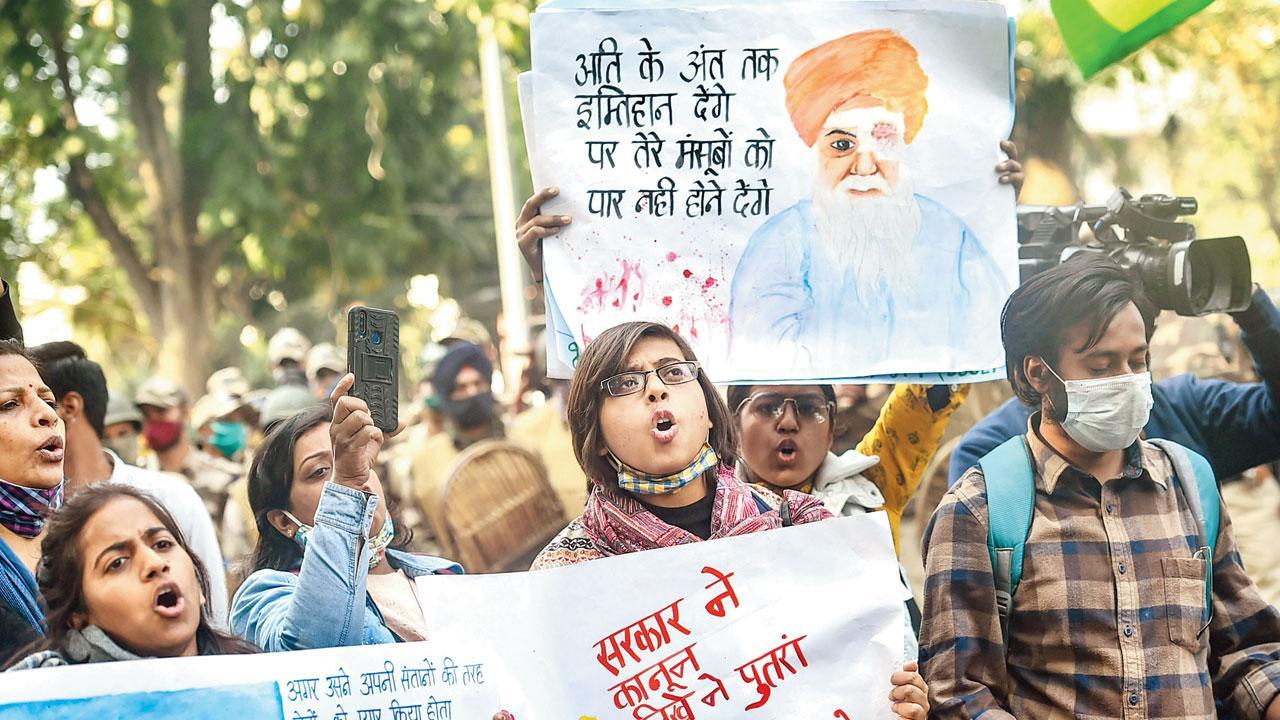 अति के अंत तक
इम्तिहान देंगे
पर तेरे मंसूबों को
पार नही होने देंगे
सरकार ने
कानून
ने पुतरां
अगर उसने अपनी संतानों की तरह
को प्यार किया होता